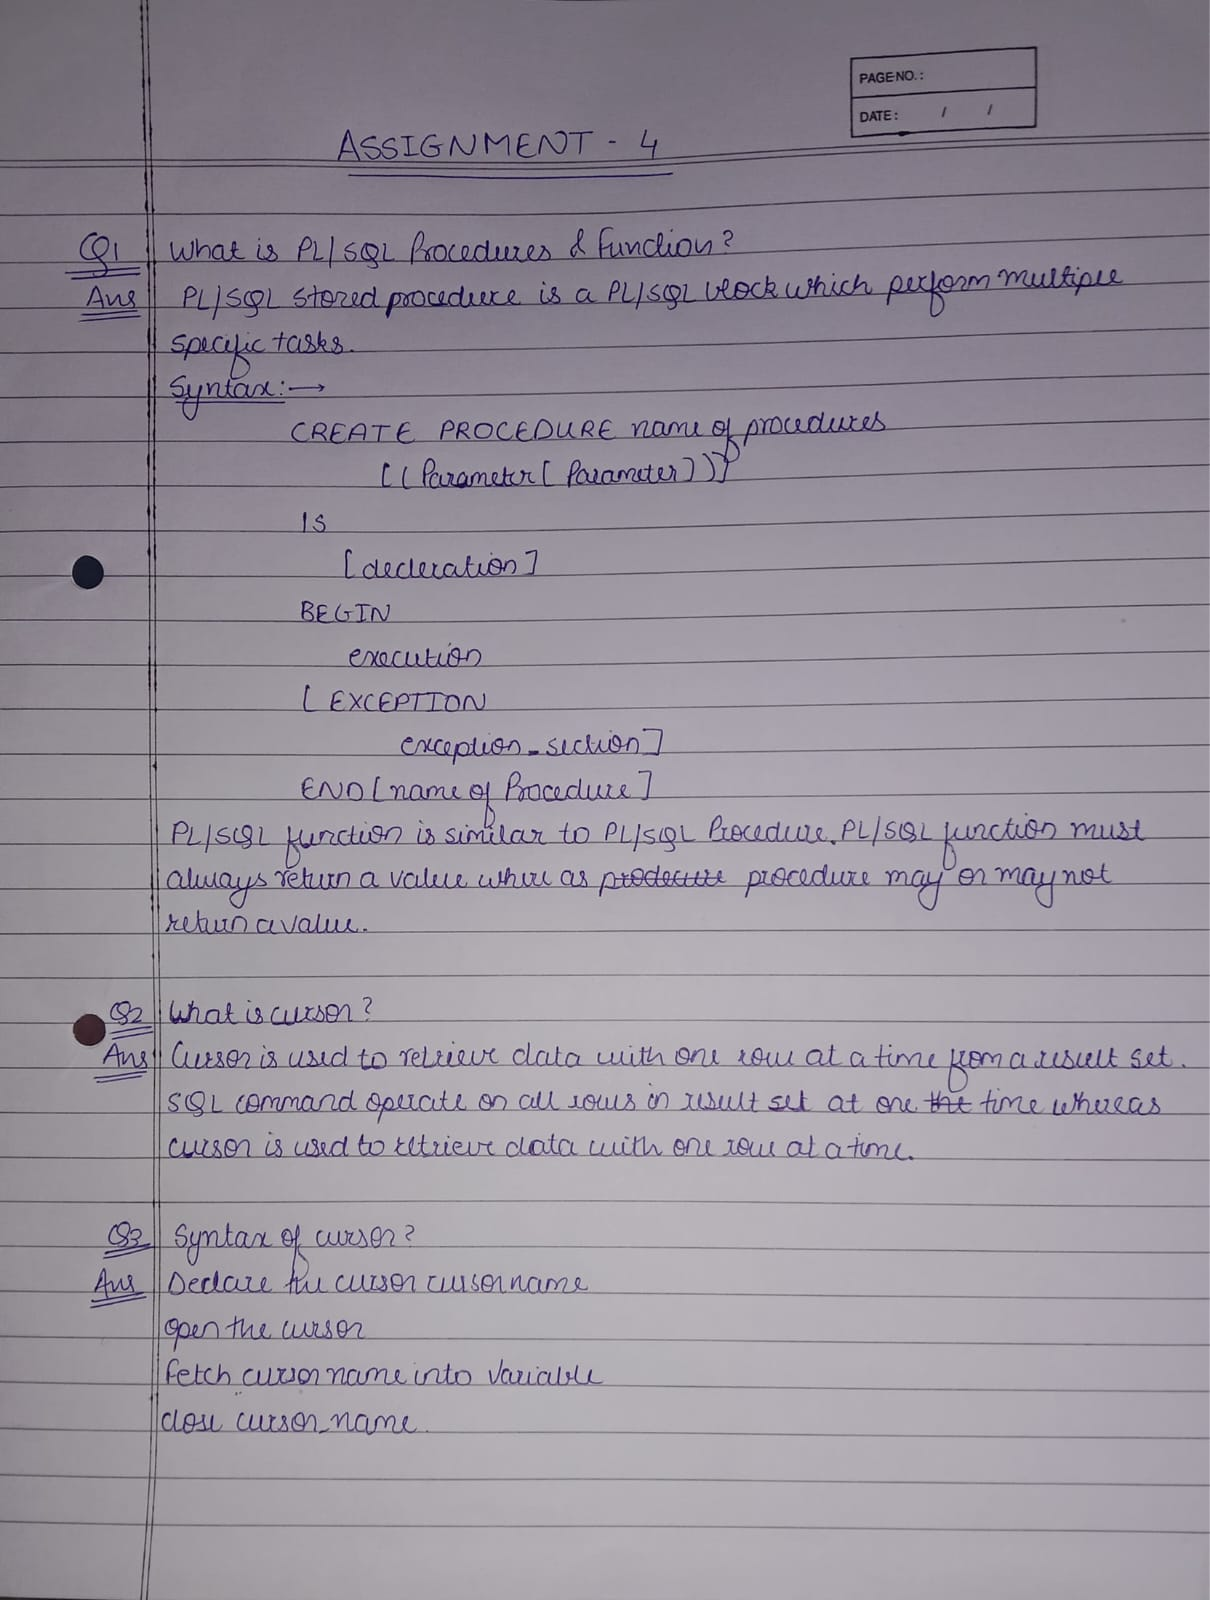 PAGE NO.:
DATE: / /
ASSIGNMENT - 4
Q1 What is PL/SQL Procedures & Function?
Ans PL/SQL stored procedure is a PL/SQL block which perform multiple
specific tasks.
Syntax:→
CREATE PROCEDURE name of procedures
[(Parameter[Parameter])]
IS
[decleration]
BEGIN
execution
[EXCEPTION
exception_section]
END[name of Procedure]
PL/SQL function is similar to PL/SQL Procedure. PL/SQL function must
always return a value where as procedure may or may not
return a value.
Q2 What is cursor?
Ans Cursor is used to retrieve data with one row at a time from a result set.
SQL command operate on all rows in result set at one the time whereas
cursor is used to retrieve data with one row at a time.
Q3 Syntax of cursor?
Ans Declare the cursor cursor name
open the cursor
Fetch cursor name into variable
close cursor_name